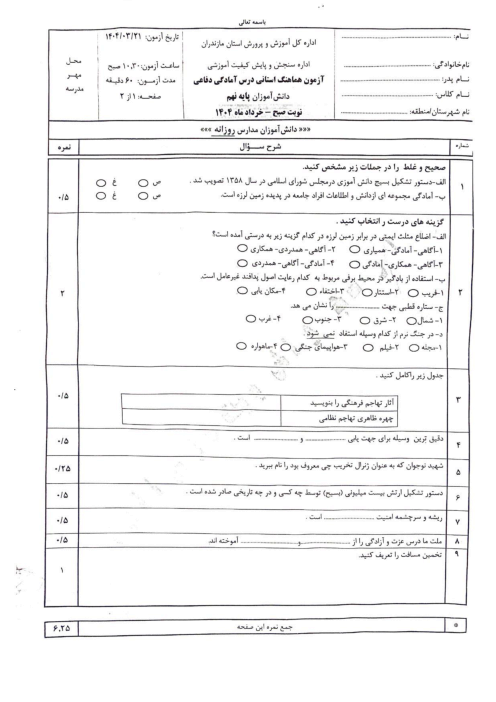 باسمه تعالی
نـــام:....
نام‌خانوادگی:
نـــام پدر:
نـــام کلاس:
نام شهرستان/منطقه:
اداره کل آموزش و پرورش استان مازندران
اداره سنجش و پایش کیفیت آموزشی
آزمون هماهنگ استانی درس آمادگی دفاعی
دانش‌آموزان پایه نهم
نوبت صبح – خرداد ماه ۱۴۰۴
تاریخ آزمون: ۱۴۰۴/۰۳/۲۱
ساعت آزمون: ۱۰,۳۰ صبح
مدت آزمــون: ۶۰ دقیقه
صفحـه: ۱ از ۲
محـل
مهـر
مدرسه
««« دانش‌آموزان مدارس روزانه »»»
شماره شرح ســؤال نمره
۱ صحیح و غلط را در جملات زیر مشخص کنید.
الف-دستور تشکیل بسیج دانش آموزی درمجلس شورای اسلامی در سال ۱۳۵۸ تصویب شد . ص غ
ب- آمادگی مجموعه ای ازدانش و اطلاعات افراد جامعه در پدیده زمین لرزه است. ص غ ۰/۵
۲ گزینه های درست را انتخاب کنید .
الف- اضلاع مثلث ایمنی در برابر زمین لرزه در کدام گزینه زیر به درستی آمده است؟
۱-آگاهی- آمادگی- همیاری ۲- آگاهی- همدردی- همکاری
۳-آگاهی- همکاری-آمادگی ۴- آمادگی-آگاهی- همدردی
ب- استفاده از بادگیر در محیط برقی مربوط به کدام رعایت اصول پدافند غیرعامل است. ۲
۱-فریب ۲-استتار ۳-اختفاء ۴-مکان یابی
ج- ستاره قطبی جهت ................ را نشان می هد.
۱- شمال ۲- شرق ۳- جنوب ۴- غرب
د- در جنگ نرم از کدام وسیله استفاد نمی شود
۱-مجله ۲-فیلم ۳-هواپیمای جنگی ۴-ماهواره
۳ جدول زیر راکامل کنید . ۰/۵
آثار تهاجم فرهنگی را بنویسید
چهره ظاهری تهاجم نظامی
۴ دقیق ترین وسیله برای جهت یابی ................ و ................ است . ۰/۵
۵ شهید نوجوان که به عنوان ژنرال تخریب چی معروف بود را نام ببرید . ۰/۲۵
۶ دستور تشکیل ارتش بیست میلیونی (بسیج) توسط چه کسی و در چه تاریخی صادر شده است . ۰/۵
۷ ریشه و سرچشمه امنیت .................... است . ۰/۵
۸ ملت ما درس عزت و آزادگی را از ....................و.................... آموخته اند. ۰/۵
۹ تخمین مسافت را تعریف کنید. ۱
* جمع نمره این صفحه ۶,۲۵